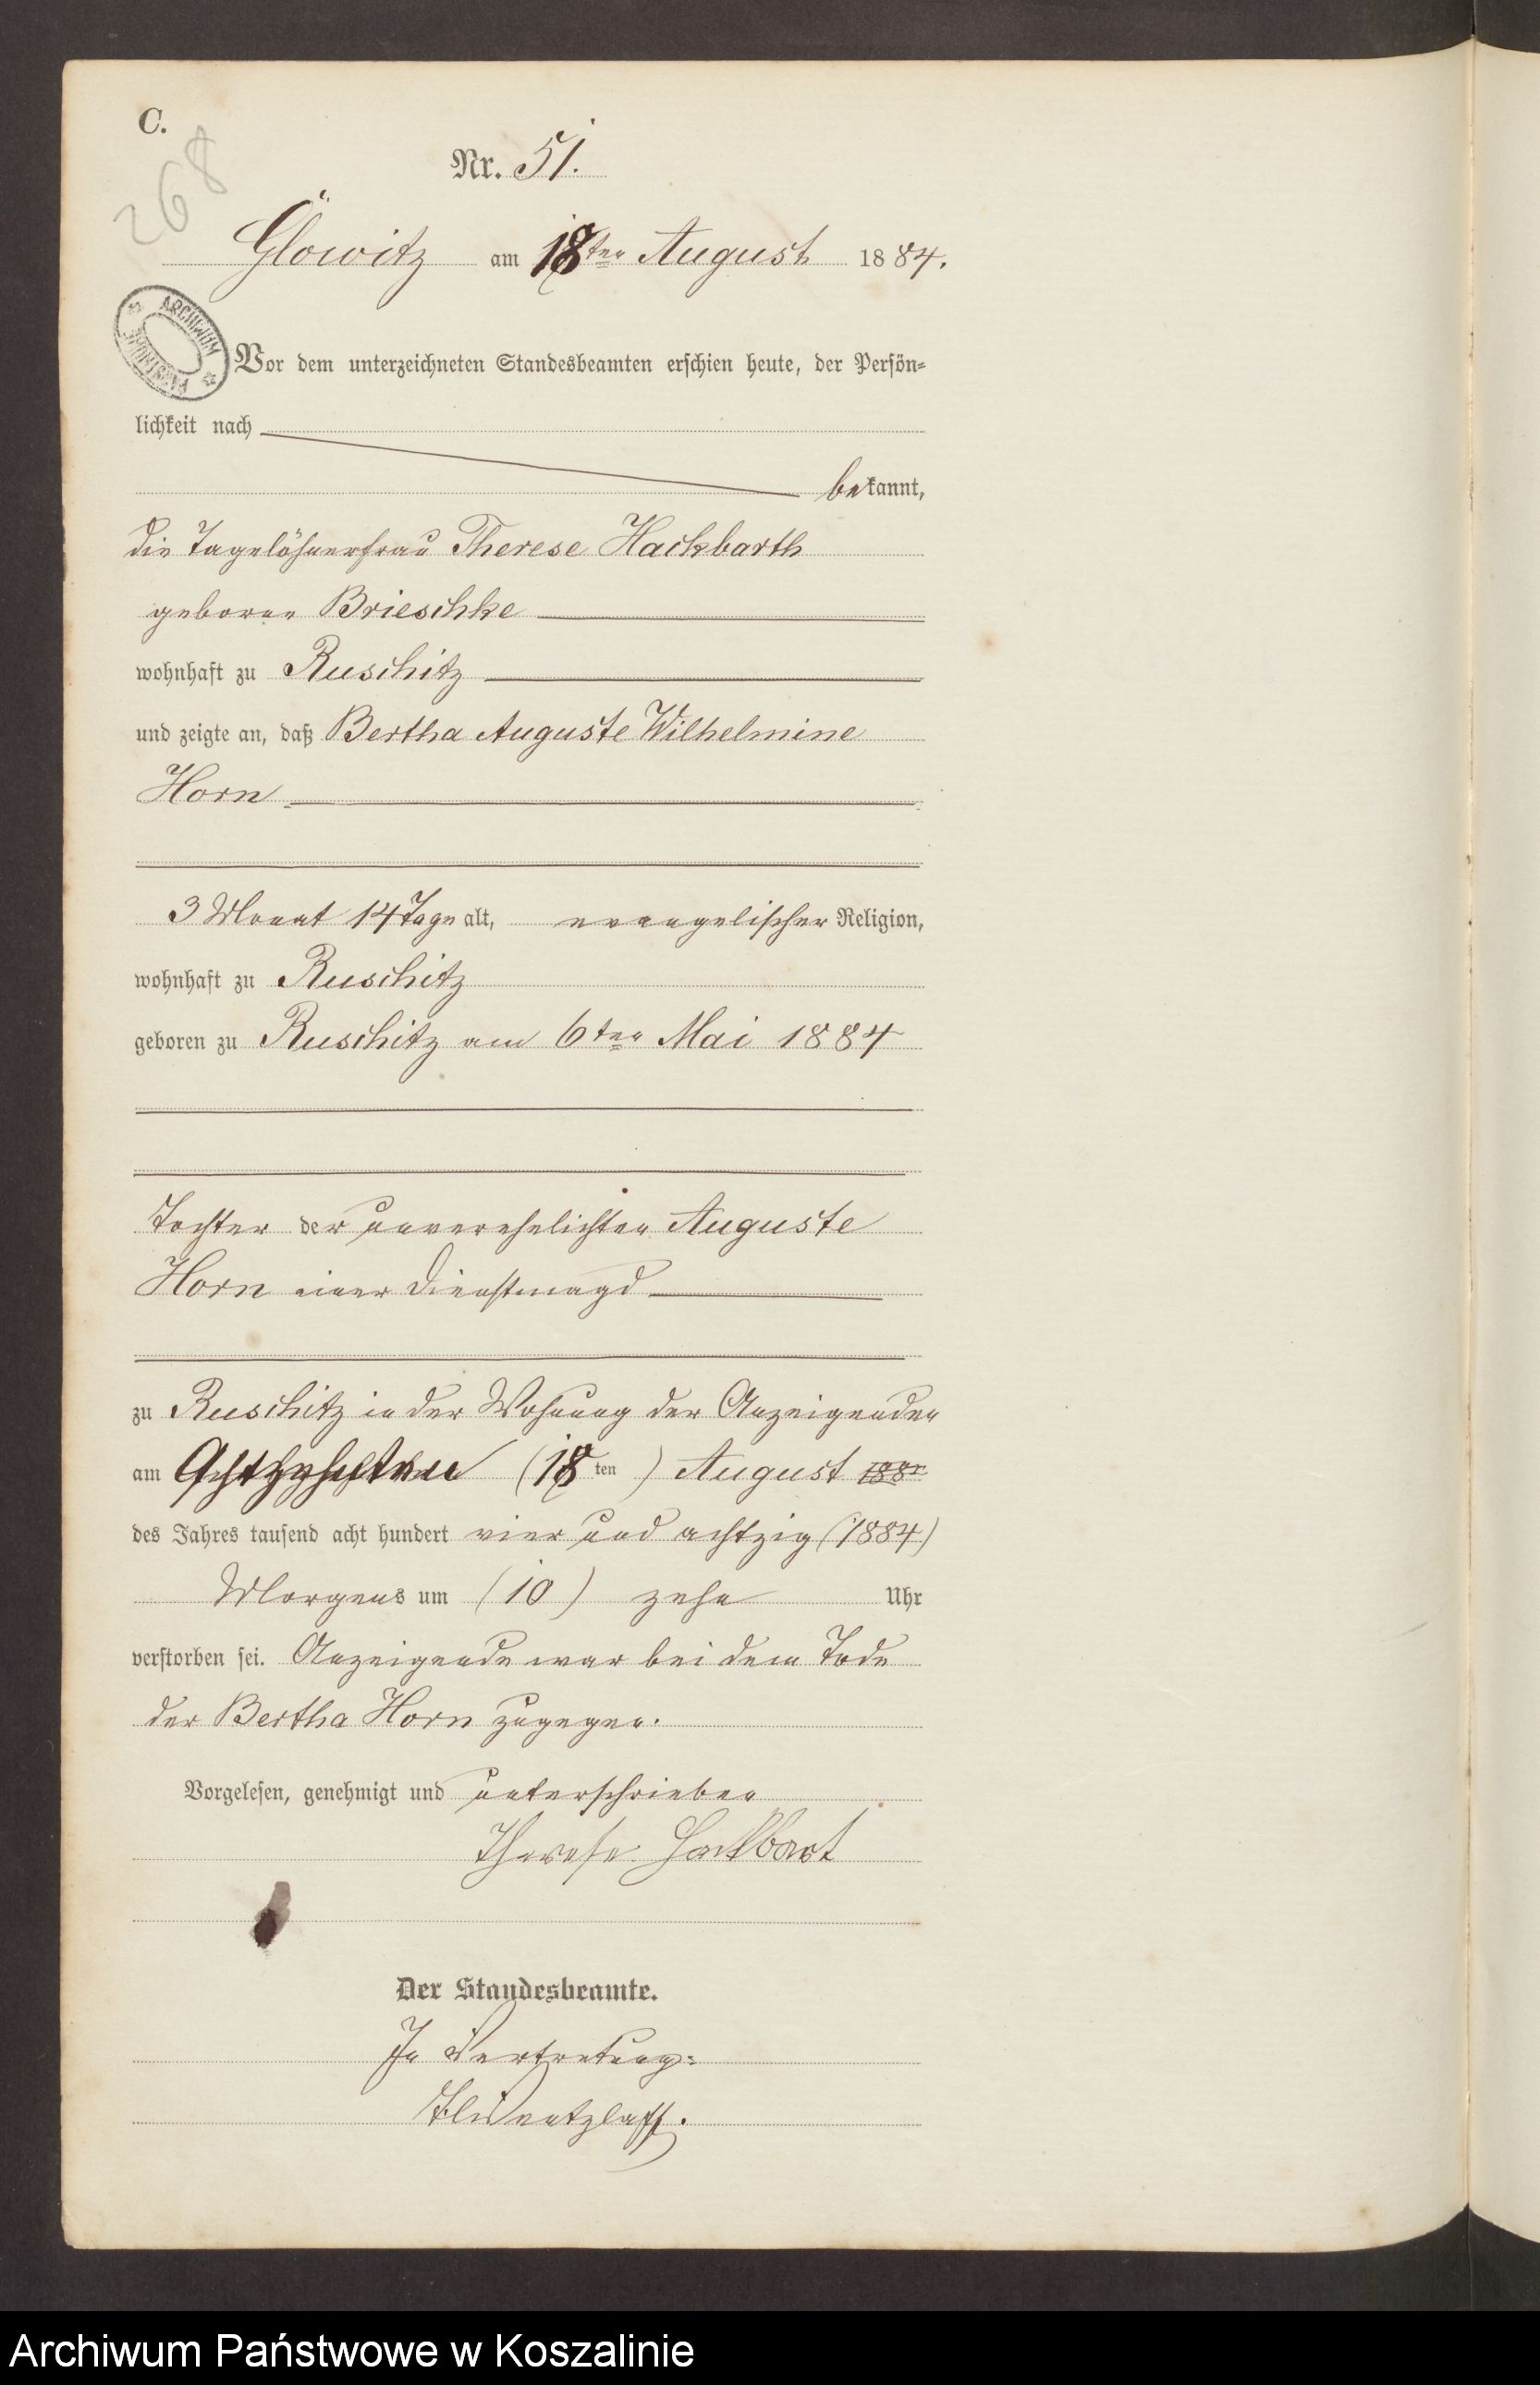 C.
268
Nr. 51.
Glowitz am 18ten August 1884.
ARCHIWUM
Vor dem unterzeichneten Standesbeamten erschien heute, der Persön-
lichkeit nach
bekannt,
die Tagelöhnerfrau Therese Hackbarth
geboren Brieschke
wohnhaft zu Ruschitz
und zeigte an, daß Bertha Auguste Wilhelmine
Horn
3 Monat 14 Tage alt, evangelischer Religion,
wohnhaft zu Ruschitz
geboren zu Ruschitz am 6ten Mai 1884
Tochter der unverehelichten Auguste
Horn einer Dienstmagd
zu Ruschitz in der Wohnung der Anzeigenden
am Achtzehnten (18ten) August 188
des Jahres tausend acht hundert vier und achtzig (1884)
Morgens um (10) zehn Uhr
verstorben sei. Anzeigende war bei dem Tode
der Bertha Horn zugegen.
Vorgelesen, genehmigt und unterschrieben
Therese Hackbart
Der Standesbeamte.
In Vertretung:
Archiwum Państwowe w Koszalinie